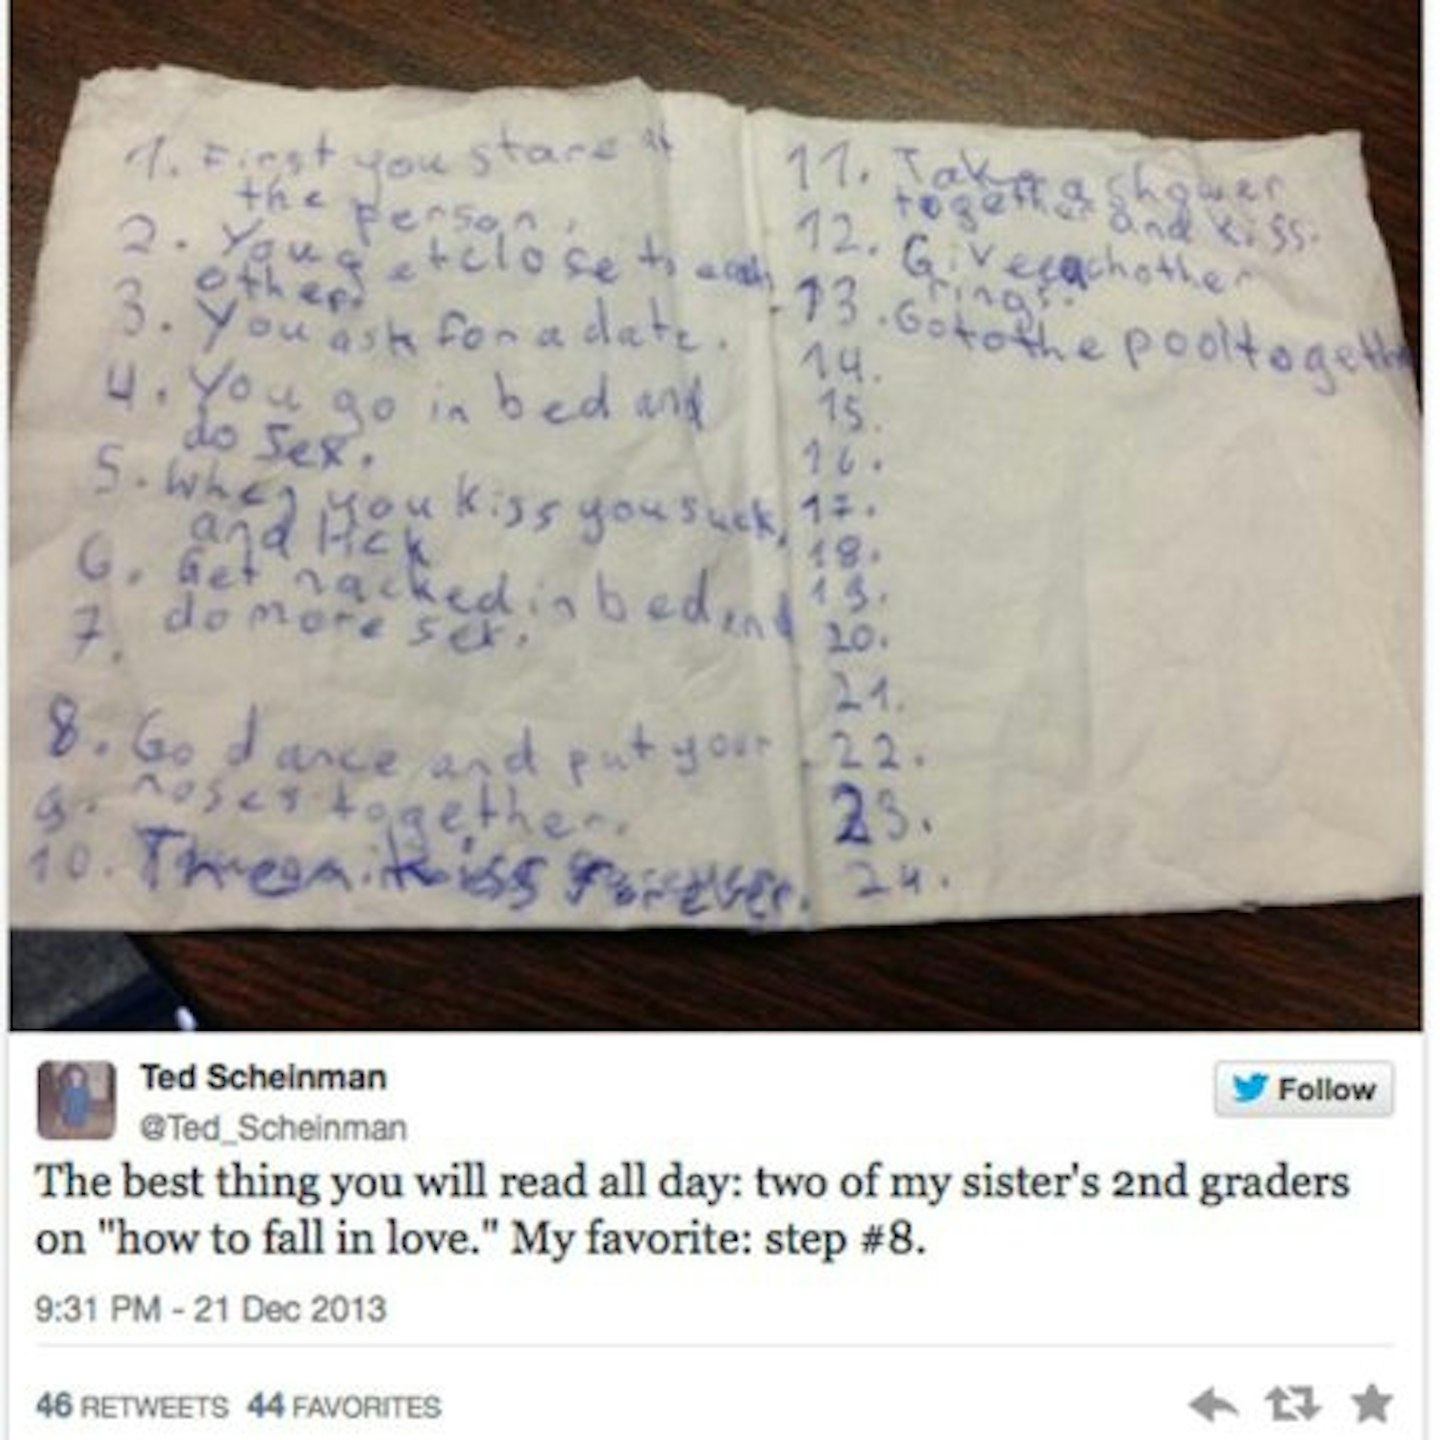 1. First you stare at
the person.
2. You get close to each
other.
3. You ask for a date.
4. You go in bed and
do sex.
5. When you kiss you suck
and lick
6. Get nacked in bed and
7. do more sex.
8. Go dance and put your
9. noses together.
10. Then kiss forever.
11. Take a shower
together and kiss.
12. Give eachother
rings.
13. Go to the pool togethe
14.
15.
16.
17.
18.
19.
20.
21.
22.
23.
24.
Ted Scheinman
@Ted_Scheinman
Follow
The best thing you will read all day: two of my sister's 2nd graders
on "how to fall in love." My favorite: step #8.
9:31 PM - 21 Dec 2013
46 RETWEETS 44 FAVORITES